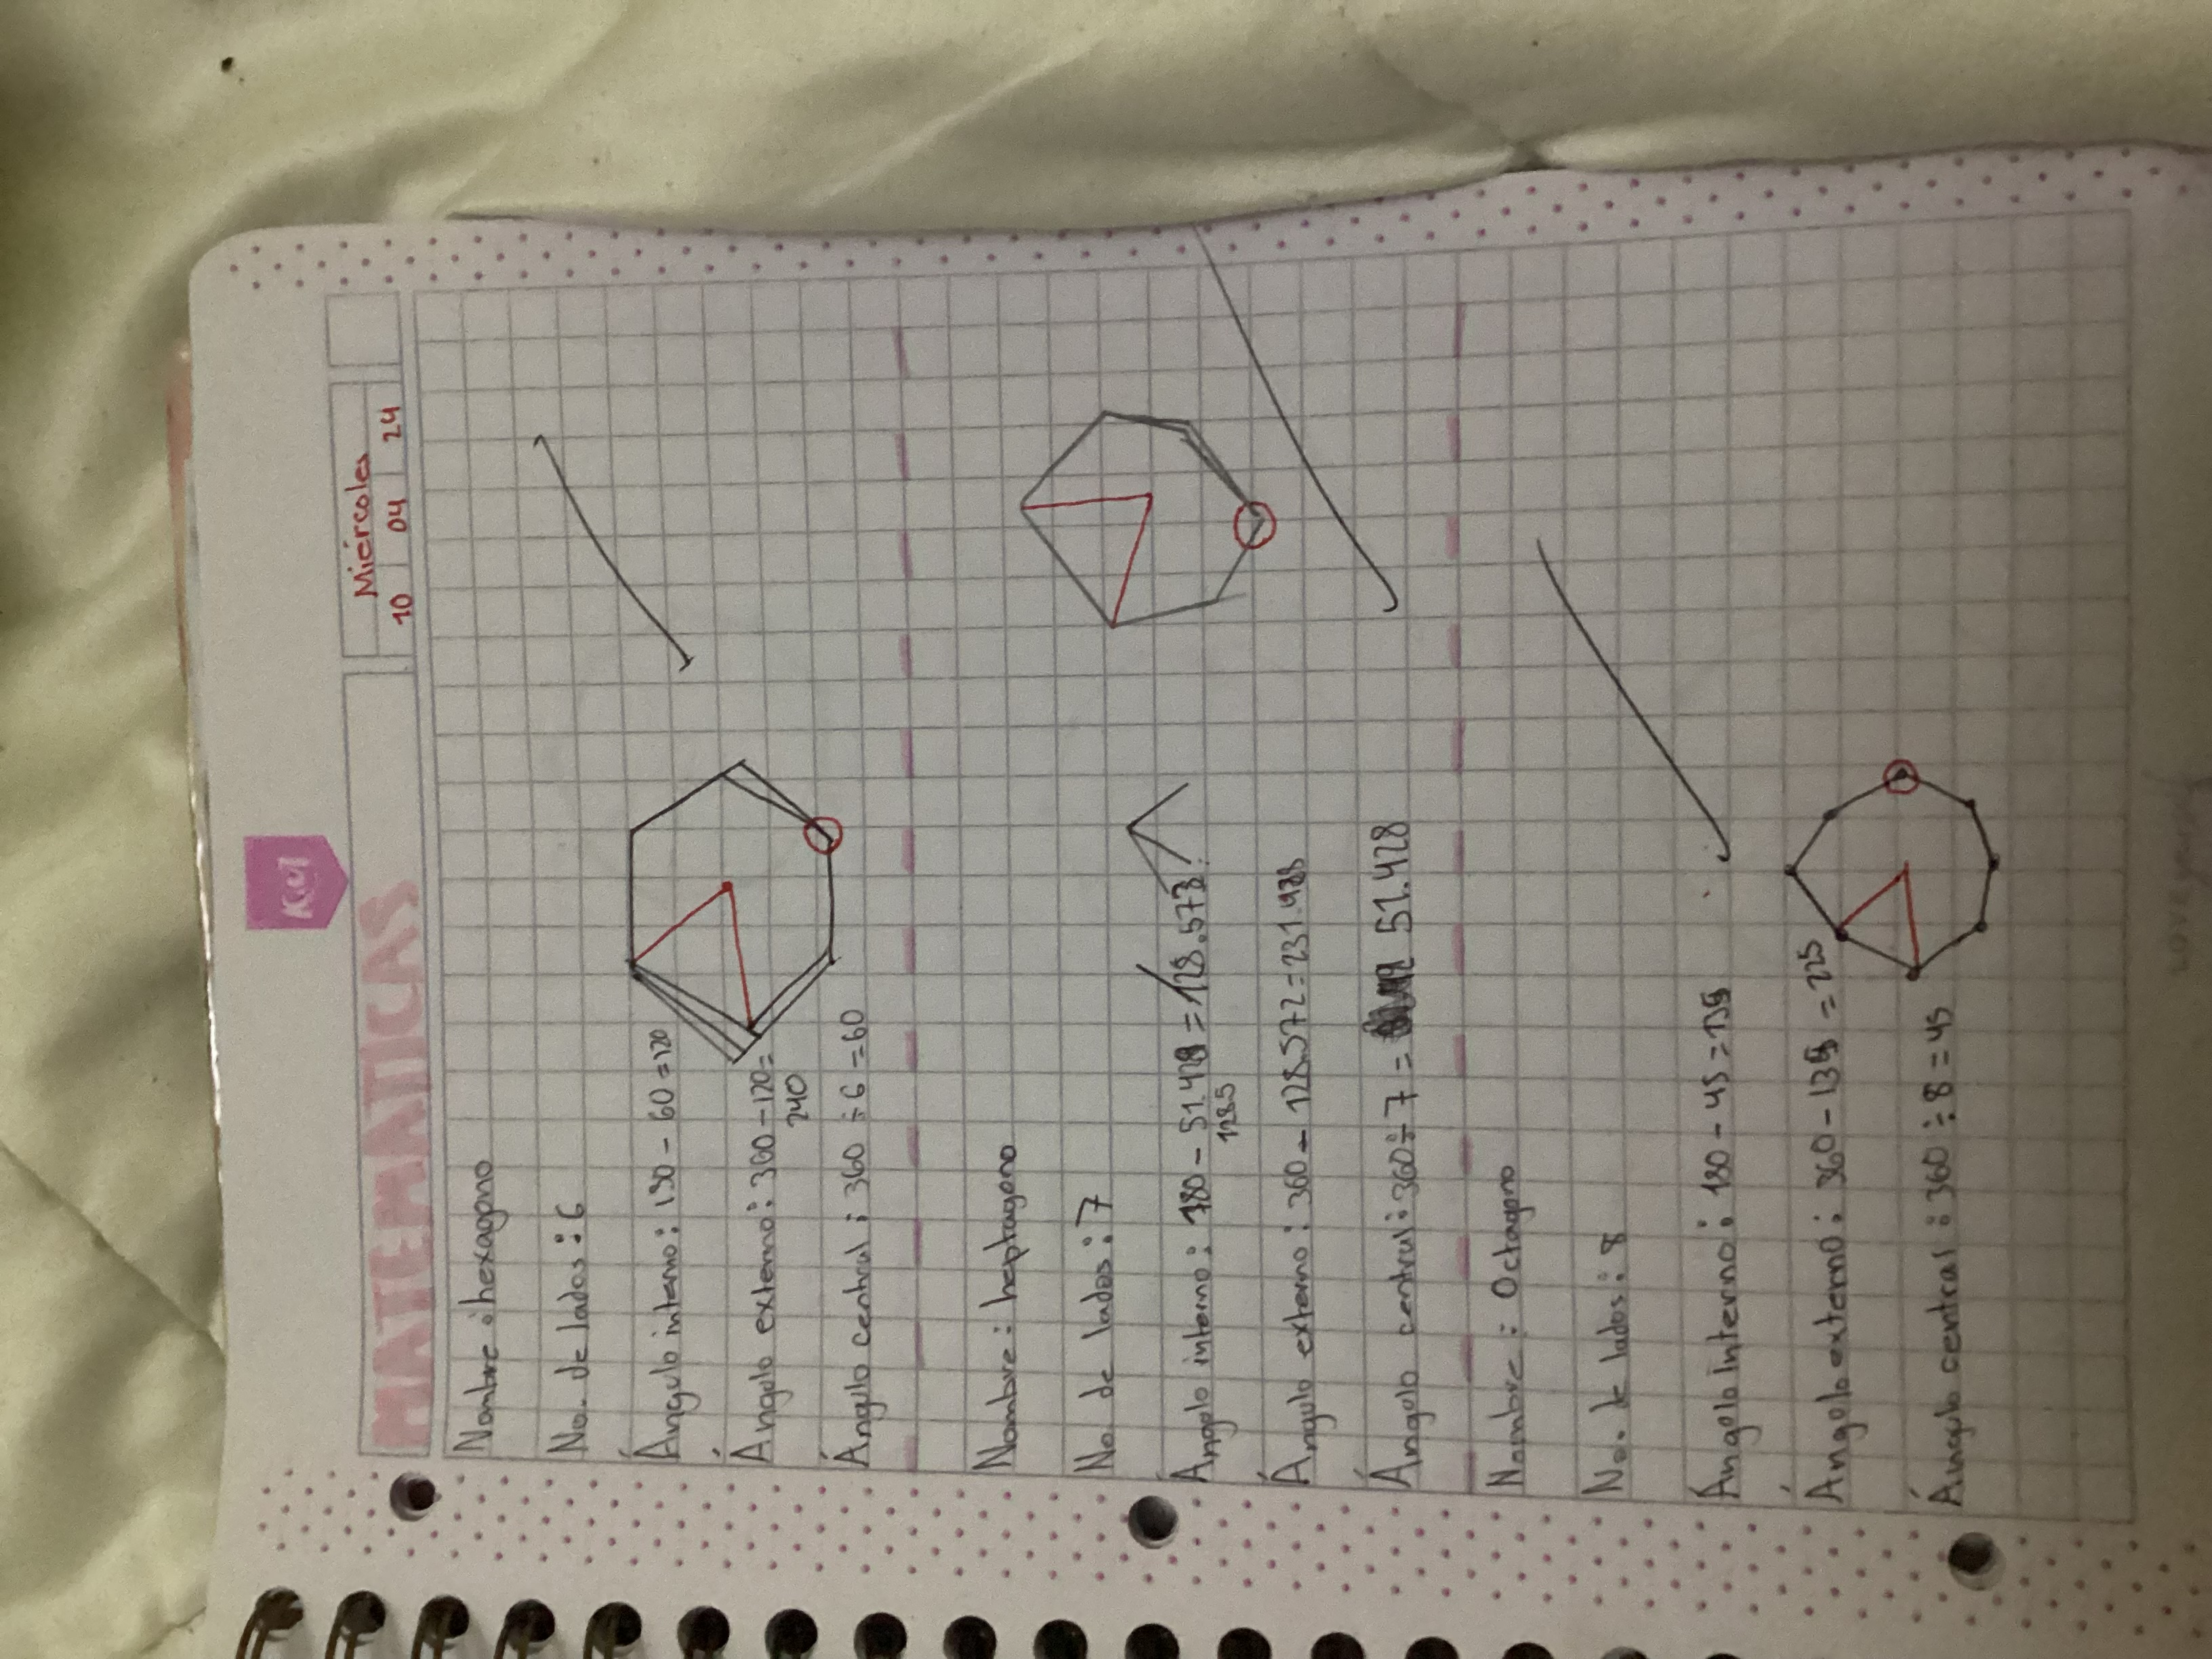 Kut
MATEMATICAS
Miércoles
10 04 24
Nombre : hexagono
No. de lados : 6
Ángulo interno : 180 - 60 = 120
Ángulo externo : 360 - 120 =
240
Ángulo central : 360 ÷ 6 = 60
Nombre : heptagono
No. de lados : 7
Ángulo interno : 180 - 51.428 = 128.573
128.5
Ángulo externo : 360 - 128.572 = 231.428
Ángulo central : 360 ÷ 7 = 51.428
Nombre : Octagono
No. de lados : 8
Ángulo Interno : 180 - 45 = 135
Ángulo externo : 360 - 135 = 225
Ángulo central : 360 ÷ 8 = 45